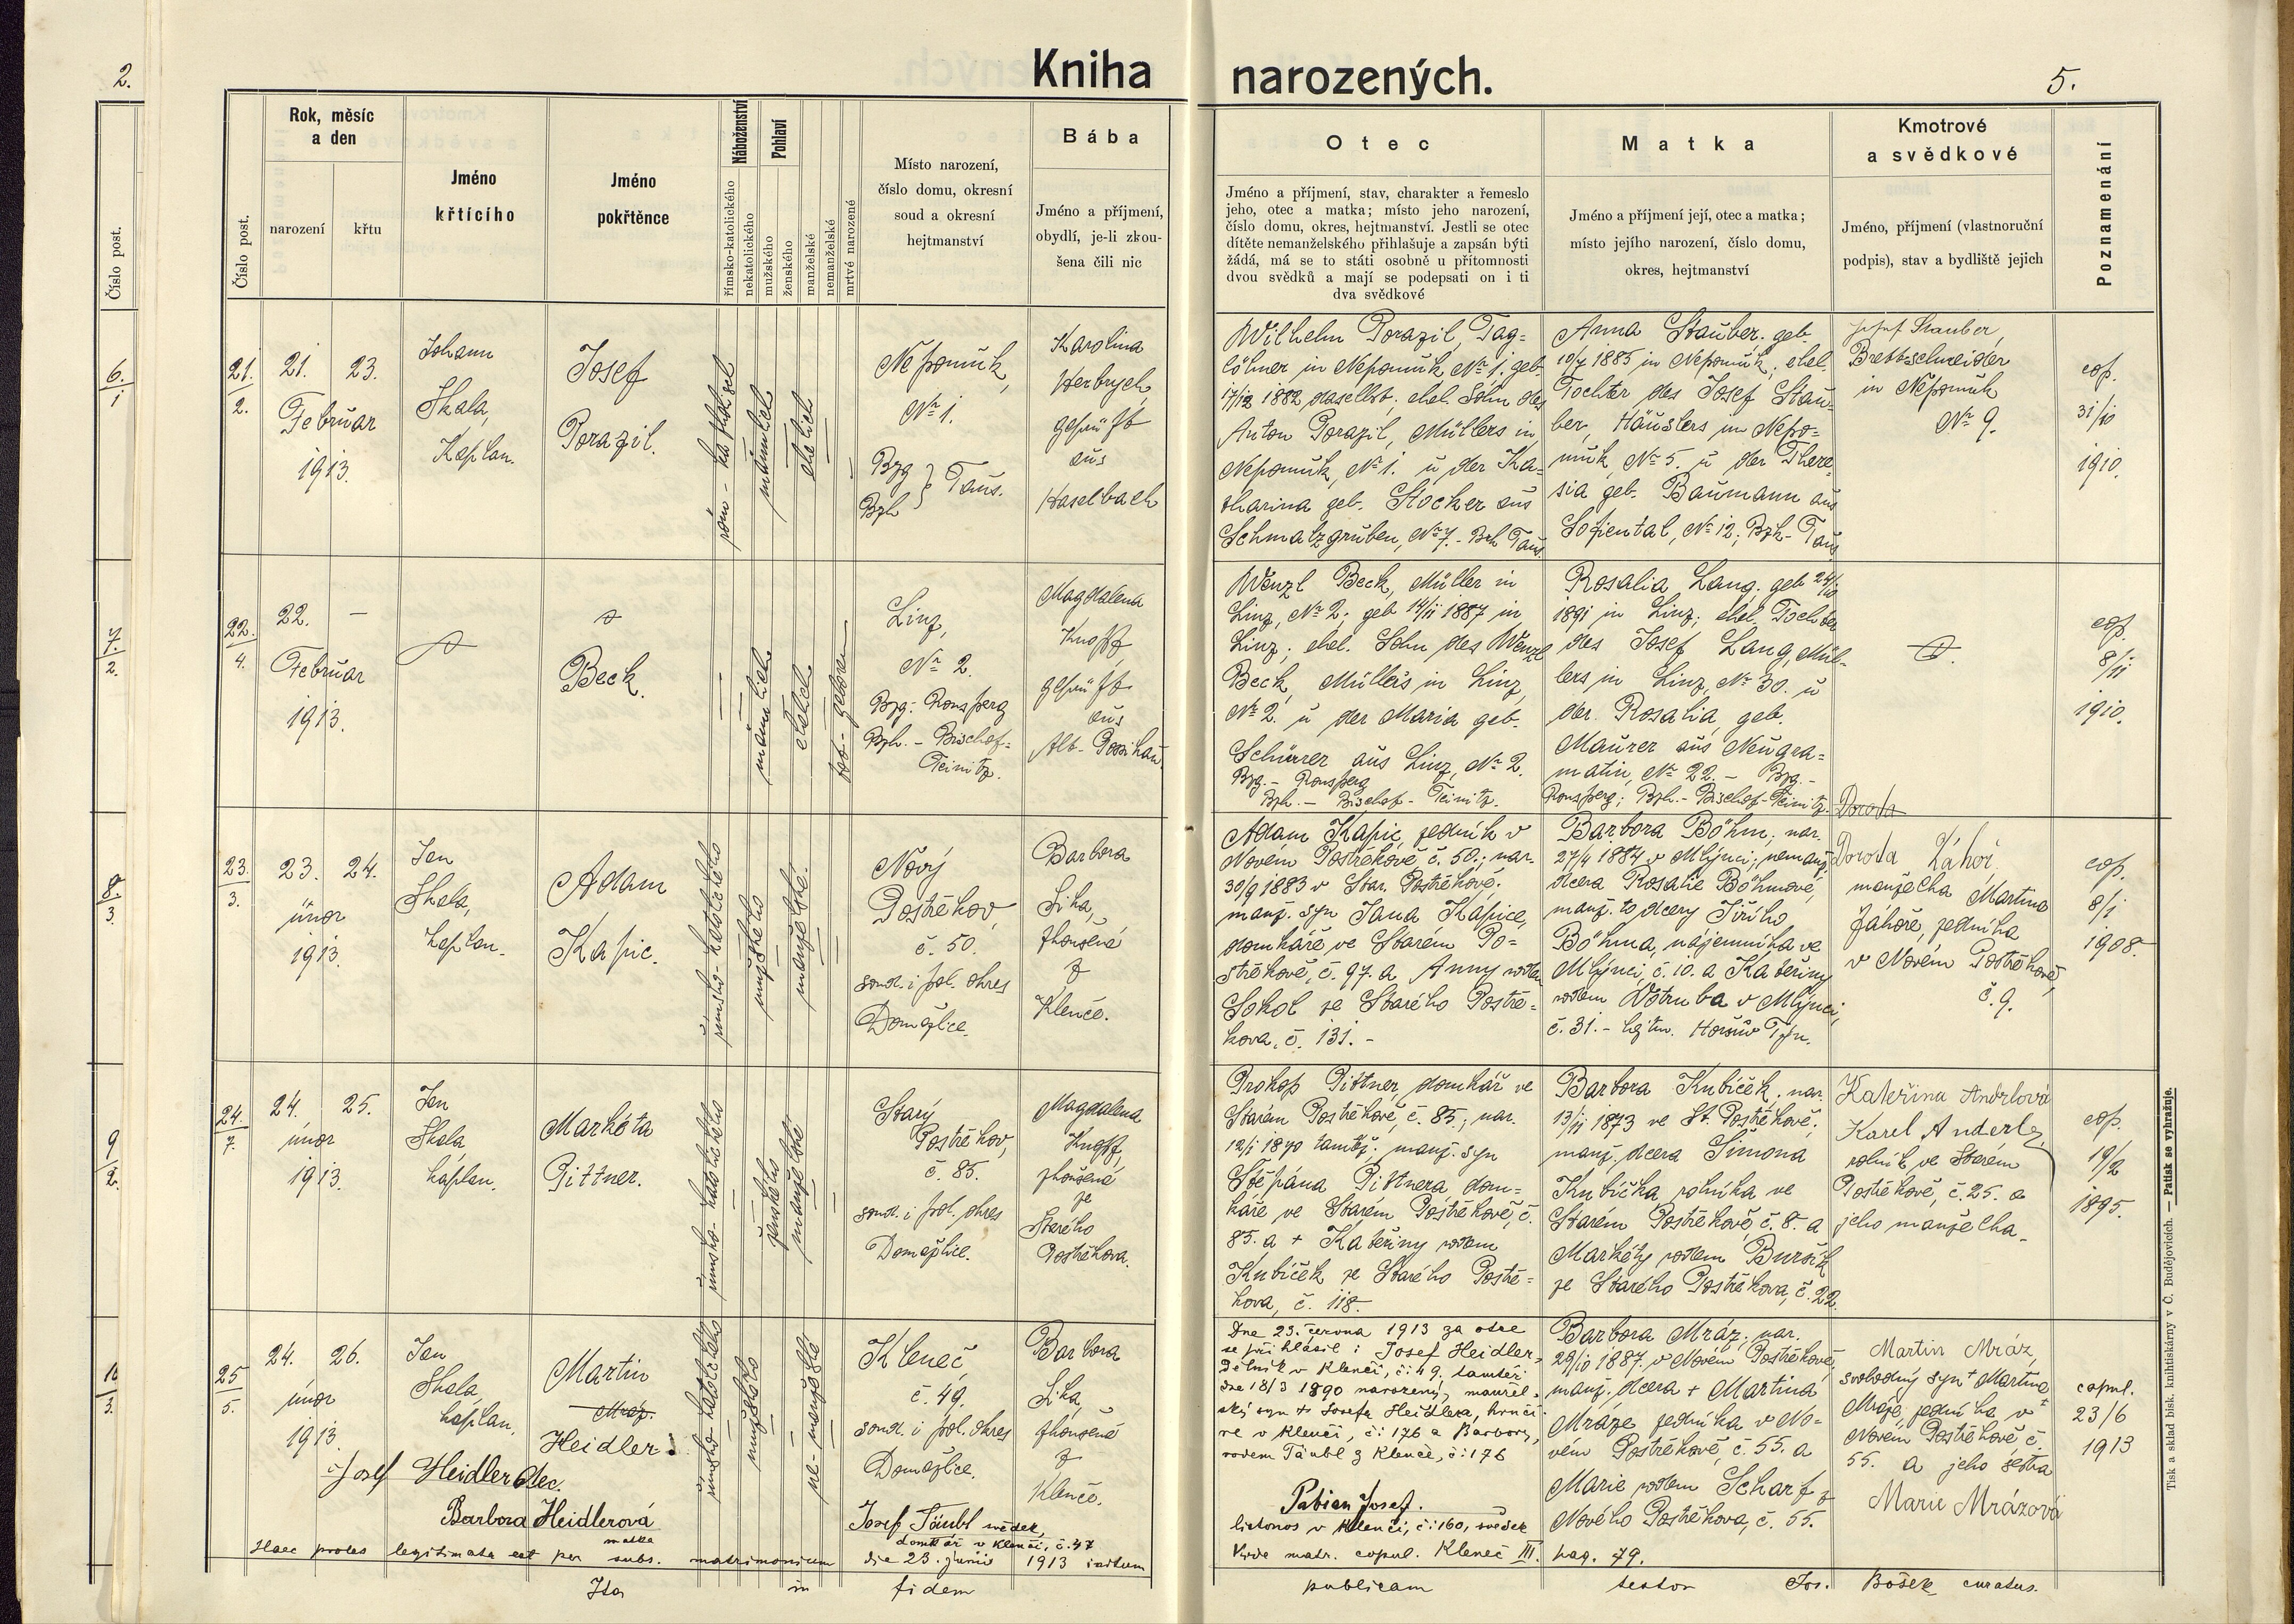 2.
Kniha narozených.
5.
Číslo post.
6./1
7./2.
8./3
9/2.
10/3.
Číslo post.
Rok, měsíc
a den
narození
křtu
Jméno
křtícího
Jméno
pokřtěnce
Náboženství
římsko-katolického
nekatolického
Pohlaví
mužského
ženského
manželské
nemanželské
mrtvé narozené
Místo narození,
číslo domu, okresní
soud a okresní
hejtmanství
Bába
Jméno a příjmení,
obydlí, je-li zkou-
šena čili nic
Otec
Jméno a příjmení, stav, charakter a řemeslo
jeho, otec a matka; místo jeho narození,
číslo domu, okres, hejtmanství. Jestli se otec
dítěte nemanželského přihlašuje a zapsán býti
žádá, má se to státi osobně u přítomnosti
dvou svědků a mají se podepsati on i ti
dva svědkové
Matka
Jméno a příjmení její, otec a matka;
místo jejího narození, číslo domu,
okres, hejtmanství
Kmotrové
a svědkové
Jméno, příjmení (vlastnoruční
podpis), stav a bydliště jejich
Poznamenání
21./2.
21. 23.
Februar
1913.
Johann
Skala,
Kaplan.
Josef
Porazil.
röm-katholisch
männlich
ehelich
Nepomuk,
Nr 1.
Bzg } Taus.
Bzh
Karolina
Herbrych,
geprüft
aus
Haselbach
Wilhelm Porazil, Tag-
löhner in Nepomuk Nr 1. geb.
17/12 1882 daselbst, ehel. Sohn des
Anton Porazil, Müllers in
Nepomuk, Nr 1. u der Ka-
tharina geb. Stocker aus
Schmalzgruben, Nr 7. - Bzh Taus.
Anna Stauber, geb.
10/7 1885 in Nepomuk; ehel.
Tochter des Josef Stau-
ber, Häuslers in Nepo-
muk, Nr 5. u der There-
sia geb. Baumann aus
Sofiental, Nr 12; Bzh-Taus
Josef Stauber,
Brettschneider
in Nepomuk
Nr 9.
cop.
31/10
1910.
22./4.
22. -
Februar
1913.
Beck.
männlich
ehelich
tot-geboren
Linz,
Nr 2.
Bzg. Ronsperg
Bzh. - Bischof-
Teinitz.
Magdalena
Knopf,
geprüft
aus
Alt-Possikau
Wenzl Beck, Müller in
Linz, Nr 2; geb 14/11 1887 in
Linz; ehel. Sohn des Wenzl
Beck, Müllers in Linz,
Nr 2. u der Maria geb.
Schürer aus Linz, Nr 2.
Bzg. - Ronsperg
Bzh. - Bischof-Teinitz.
Rosalia Lang, geb 24/10
1891 in Linz; ehel. Tochter
des Josef Lang, Mül-
lers in Linz, Nr 30. u
der Rosalia, geb.
Maurer aus Neugra-
matin, Nr 22. - Bzg.-
Ronsperg; Bzh.-Bischof-Teinitz.
cop.
8/11
1910.
Dorota
23./3.
23. 24.
únor
1913.
Jan
Skala,
kaplan.
Adam
Kapic.
římsko-katolického
mužského
manželské
Nový
Postřekov
č. 50.
soud. i pol. okres
Domažlice.
Barbora
Lika,
zkoušená
z
Klenče.
Adam Kapic, sedník v
Novém Postřekově č. 50.; nar.
30/9 1883 v Star. Postřekově;
manž. syn Jana Kapice,
domkáře ve Starém Po-
střekově, č. 97. a Anny rodem
Sokol ze Starého Postře-
kova, č. 131. -
Barbora Böhm; nar.
27/4 1884 v Mlýnci; nemanž.
dcera Rosalie Böhmové,
manž. to dcery Jiřího
Böhma, nájemníka ve
Mlýnci, č. 10. a Kateřiny
rodem Votruba v Mlýnci,
č. 31. - hejtm. Horšův Týn.
Dorota Záhoř,
manželka Martina
Záhoře, sedníka
v Novém Postřekově,
č. 9.
cop.
8/1
1908.
24./7.
24. 25.
únor
1913.
Jan
Skala,
kaplan.
Markéta
Pittner.
římsko-katolického
ženského
manželské
Starý
Postřekov,
č. 85.
soud. i pol. okres
Domažlice.
Magdalena
Knopf,
zkoušená
ze
Starého
Postřekova.
Prokop Pittner, domkář ve
Starém Postřekově, č. 85.; nar.
12/1 1870 tamtéž; manž. syn
Štěpána Pittnera, dom-
káře ve Starém Postřekově, č.
85. a + Kateřiny rodem
Kubíček ze Starého Postře-
kova, č. 118.
Barbora Kubíček, nar.
13/11 1873 ve St. Postřekově;
manž. dcera Šimona
Kubíčka rolníka ve
Starém Postřekově, č. 8. a
Markéty rodem Buršík
ze Starého Postřekova, č. 22.
Kateřina Andrlová
Karel Anderle,
rolník ve Starém
Postřekově, č. 25. a
jeho manželka.
cop.
19/2
1895.
25/5.
24. 26.
únor
1913.
Jan
Skala,
kaplan.
Martin
Mráz.
Heidler.
římsko-katolického
mužského
ne-manželské
Kleneč
č. 49.
soud. i pol. okres
Domažlice.
Barbora
Lika,
zkoušená
z
Klenče.
Dne 23. června 1913 za otce
se přihlásil: Josef Heidler,
dělník v Klenčí, č: 49. tamtéž
dne 18/3 1890 narozený, manžel-
ský syn + Josefa Heidlera, hrnčí-
ře v Klenčí, č: 176 a Barbory,
rodem Täubl z Klenče, č: 176
Barbora Mráz; nar.
29/10 1887. v Novém Postřekově,
manž. dcera + Martina
Mráze sedníka v No-
vém Postřekově, č. 55. a
Marie rodem Scharf z
Nového Postřekova, č. 55.
Martin Mráz,
svobodný syn + Martina
Mráze, sedníka v
Novém Postřekově č.
55. a jeho sestra
Marie Mrázová
copul.
23/6
1913
Josef Heidler otec.
Barbora Heidlerová
matka
Josef Täubl svědek,
domkář v Klenčí, č. 47
Pabian Josef.
listonos v Klenčí, č: 160, svědek
Haec proles legitimata est per subs. matrimonium die 23. junii 1913 initum
Vide matr. copul. Kleneč III. pag. 79.
Ita in fidem publicam testor Jos. Bošek curatus.
Tisk a sklad bisk. knihtiskárny v Č. Budějovicích. — Patisk se vyhražuje.